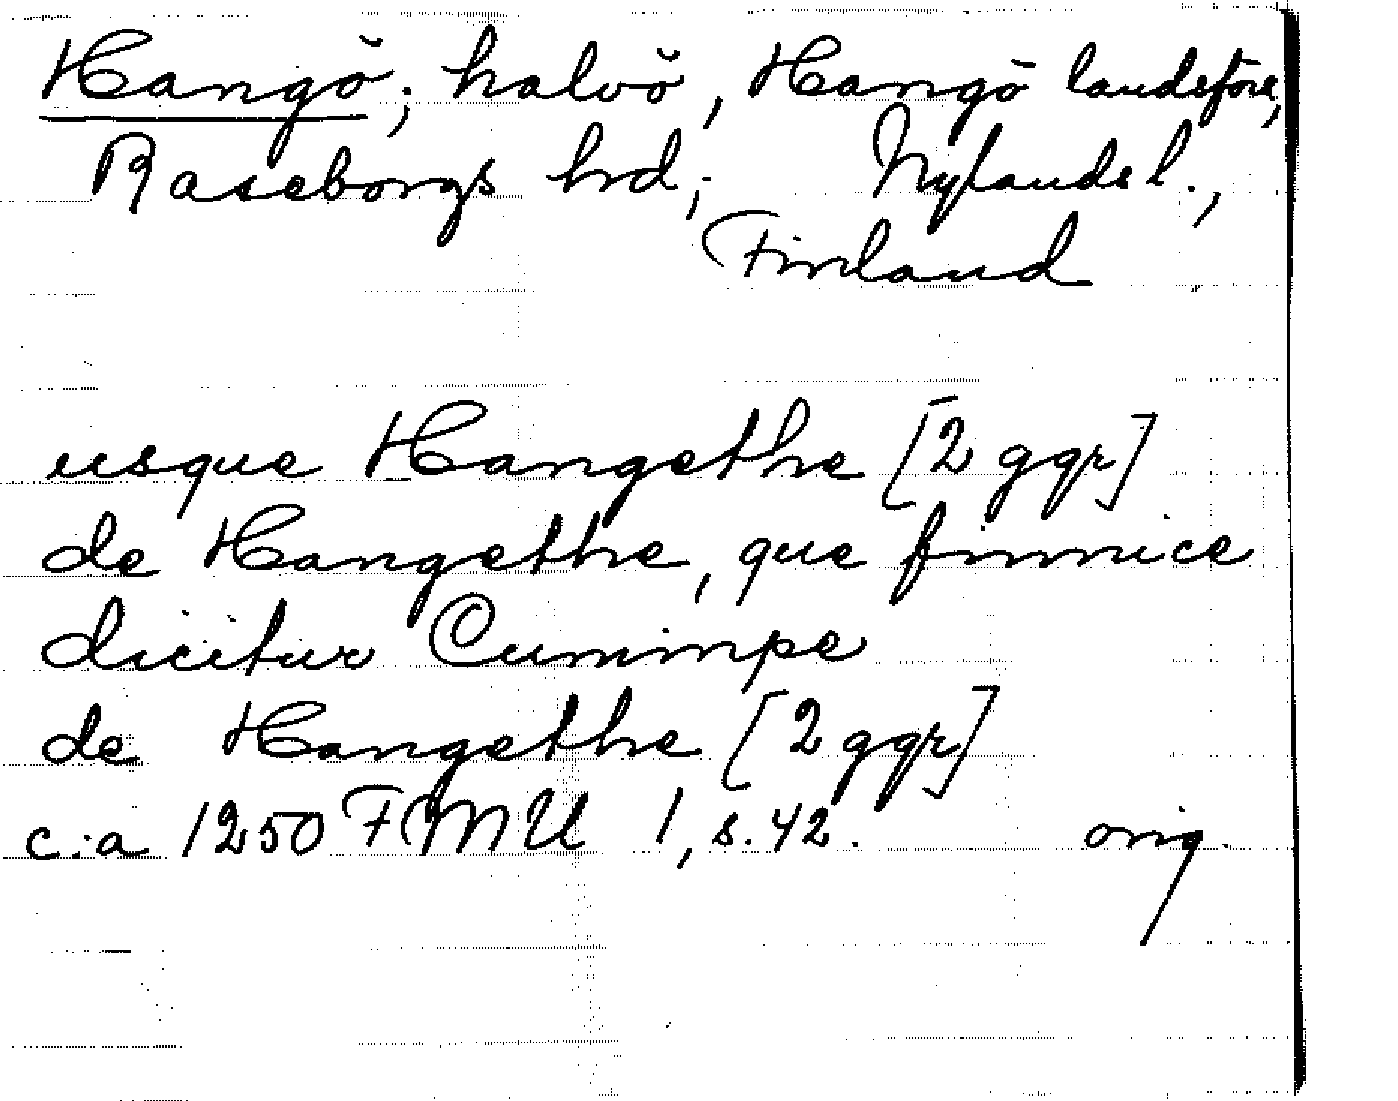 Hangö; halvö, Hangö landsförs,
Raseborgs hrd; Nylands l.,
Finland
usque Hangethe [2 ggr]
de Hangethe, que finnice
dicitur Cuminpe
de Hangethe [2 ggr]
c:a 1250 FMU 1, s. 42. orig.